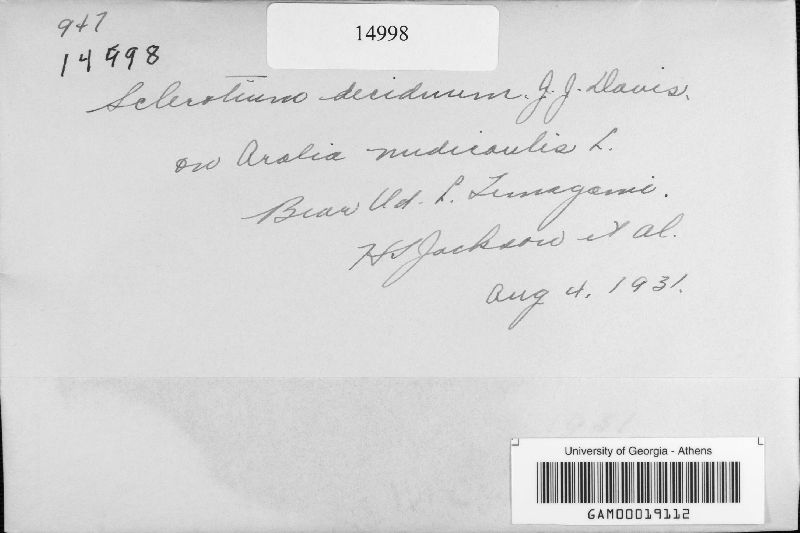 947
14998
14998
Sclerotium deciduum J. J. Davis.
on Aralia nudicaulis L.
Bear Id. L. Timagami.
HS Jackson et al.
Aug 4. 1931.
University of Georgia - Athens
GAM00019112